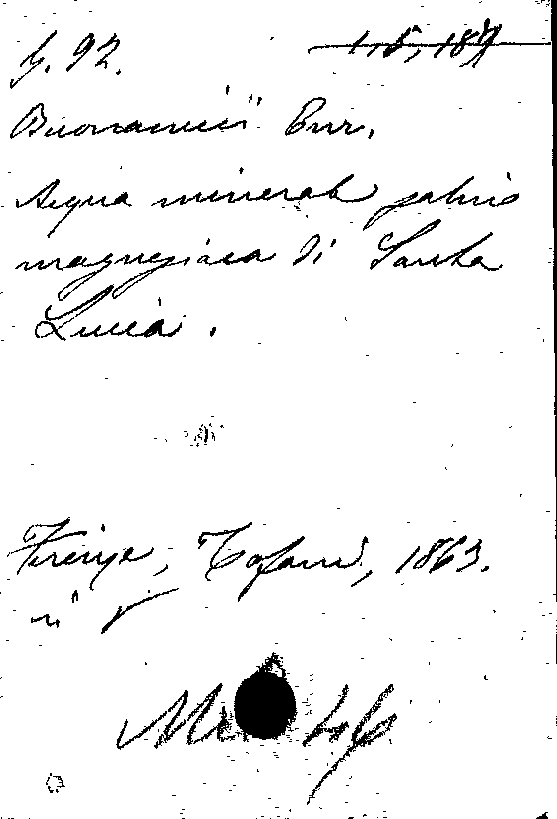 G. 92.
Buonamici Enr.
Acqua minerale salino
magnesiaca di Santa
Lucia.
Firenze, Tofani, 1863.
in 8
46